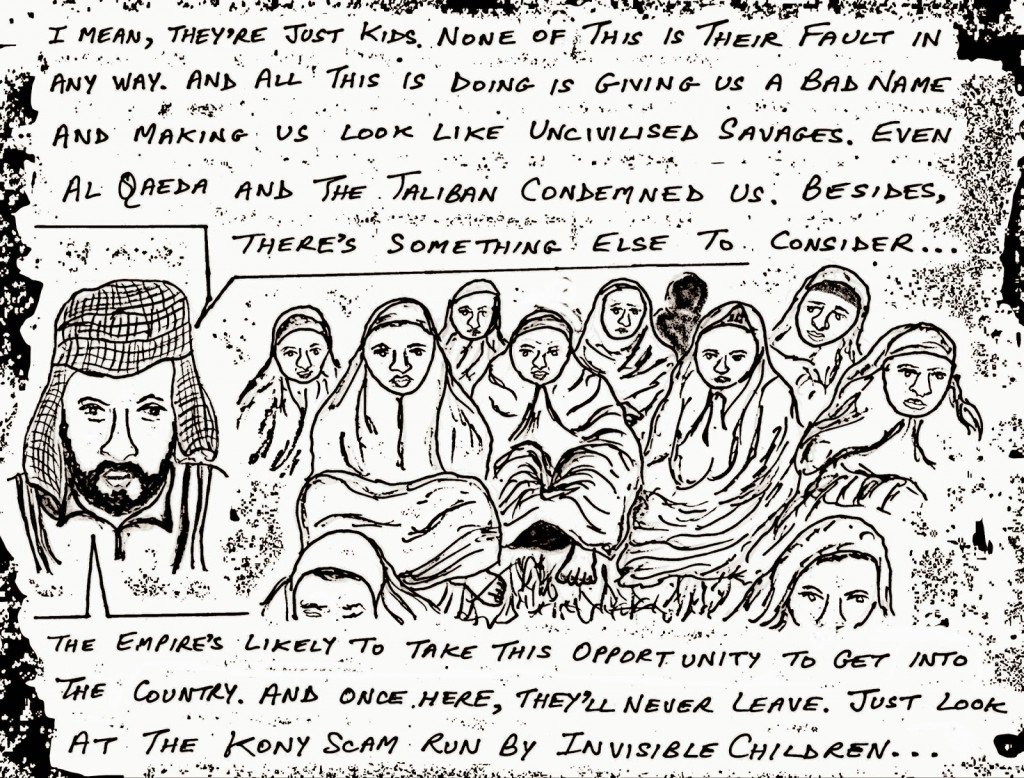 I MEAN, THEY'RE JUST KIDS. NONE OF THIS IS THEIR FAULT IN
ANY WAY. AND ALL THIS IS DOING IS GIVING US A BAD NAME
AND MAKING US LOOK LIKE UNCIVILISED SAVAGES. EVEN
AL QAEDA AND THE TALIBAN CONDEMNED US. BESIDES,
THERE'S SOMETHING ELSE TO CONSIDER...
THE EMPIRE'S LIKELY TO TAKE THIS OPPORTUNITY TO GET INTO
THE COUNTRY. AND ONCE HERE, THEY'LL NEVER LEAVE. JUST LOOK
AT THE KONY SCAM RUN BY INVISIBLE CHILDREN...